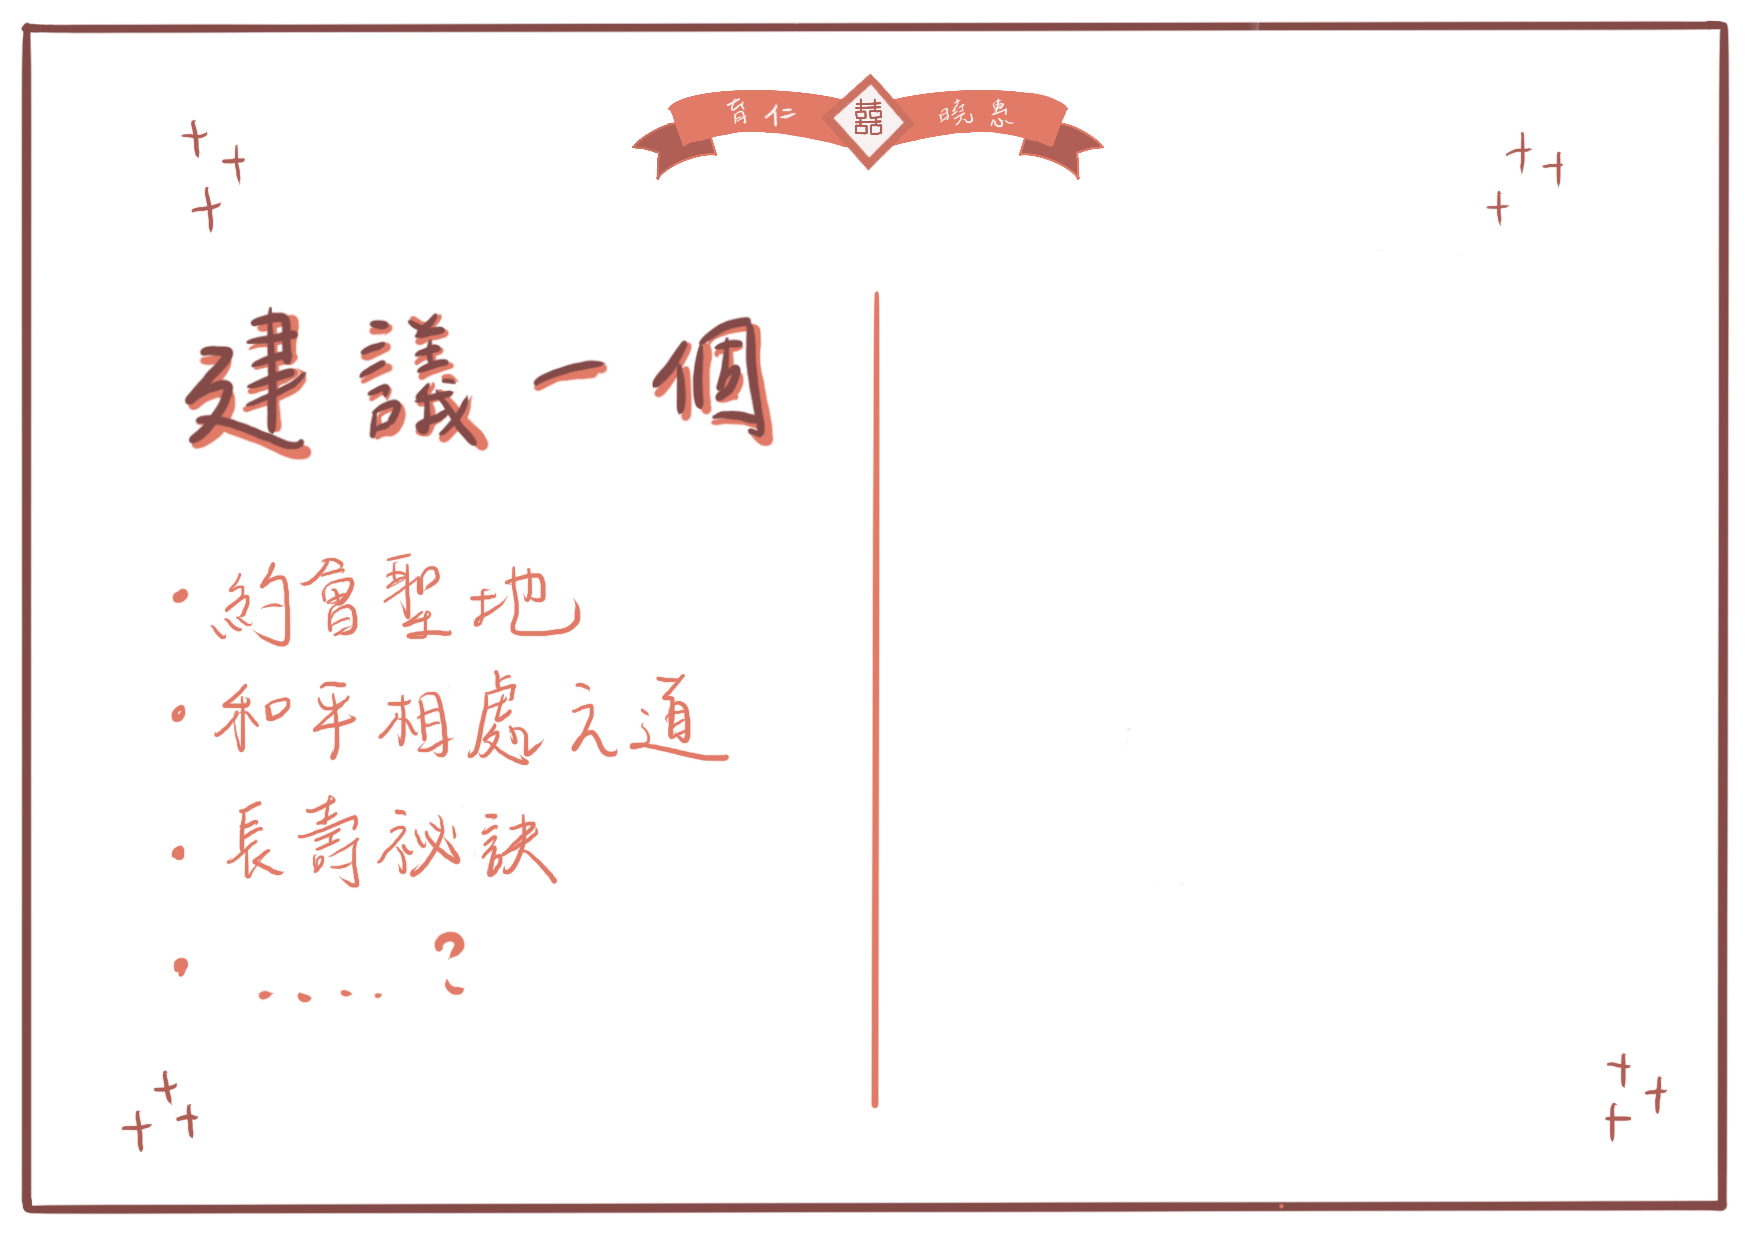 育仁 囍 曉惠
建議一個
・約會聖地
・和平相處之道
・長壽祕訣
・....?